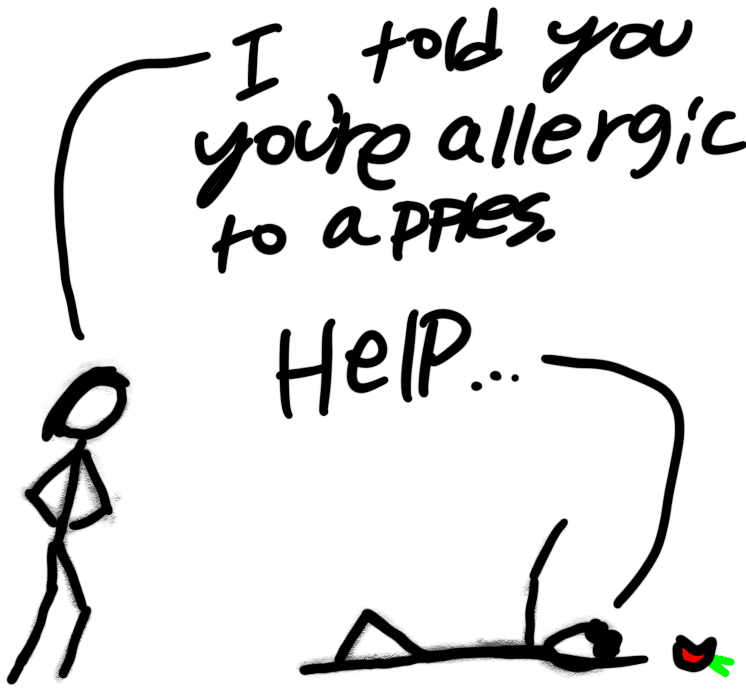 I told you
you're allergic
to apples.
Help...